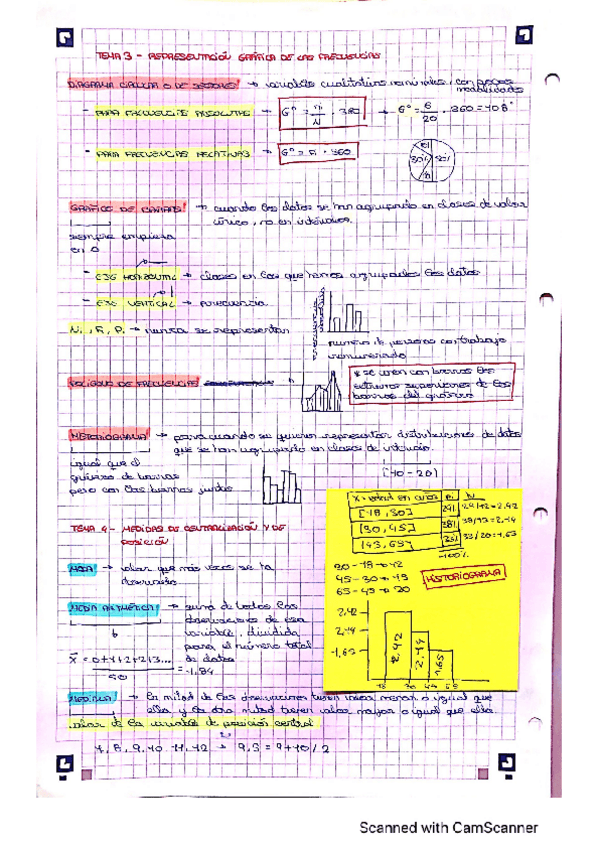 TEMA 3 - REPRESENTACIÓN GRÁFICA DE LAS FRECUENCIAS
DIAGRAMA CIRCULAR O DE SECTORES → variables cualitativas nominales, con pocas modalidades
- PARA FRECUENCIAS ABSOLUTAS → Gº = ni/N · 360 → Gº = 6/20 · 360 = 108º
- PARA FRECUENCIAS RELATIVAS → Gº = Fi · 360
GRÁFICO DE BARRAS → cuando los datos se han agrupado en clases de valor
único, no en intervalos.
siempre empieza
en 0
- EJE HORIZONTAL → clases en las que hemos agrupado los datos
- EJE VERTICAL → frecuencia
→ nunca se representan
número de personas con trabajo
remunerado
POLÍGONO DE FRECUENCIAS
* se unen con barras los
extremos superiores de las
barras del gráfico
HISTOGRAMA → para cuando se quieren representar distribuciones de datos
que se han agrupado en clases de intervalo.
igual que el
gráfico de barras
pero con las barras juntas
[10-20)
TEMA 4 - MEDIDAS DE CENTRALIZACIÓN Y DE
POSICIÓN
X = edad en años
[18, 30]
[30, 45]
[45, 65]
29/12 = 2,42
38/20 = 1,65
100%
30 - 18 → 12
45 - 30 → 15
65 - 45 → 20
HISTORIOGRAMA
2,42
1,65
18 30 45 65
MODA → valor que más veces se ha
observado
MEDIA ARITMÉTICA → suma de todas las
observaciones de esa
variable, dividida
para el número total
de datos
x̄ = 0+1+2+213... / 50 = 1,84
MEDIANA → la mitad de las observaciones tienen valor menor o igual que
ella y la otra mitad tienen valor mayor o igual que ella.
valor de la variable de posición central
7, 8, 9, 10, 11, 12 → 9,5 = 9+10/2
Scanned with CamScanner